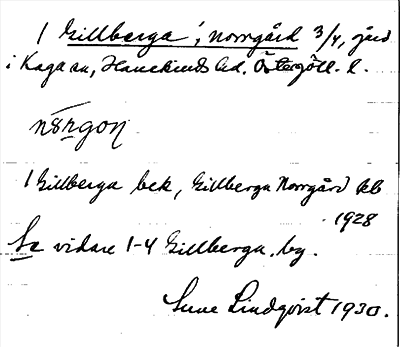 1 Gillberga, norrgård 3/4, jord
i Kaga sn, Hanekinds hd. Östergötl. l.
nǫrgon
1 Gillberga bek, Gillberga Norrgård kb
1928
Se vidare 1-4 Gillberga, by.
Sune Lindqvist 1930.